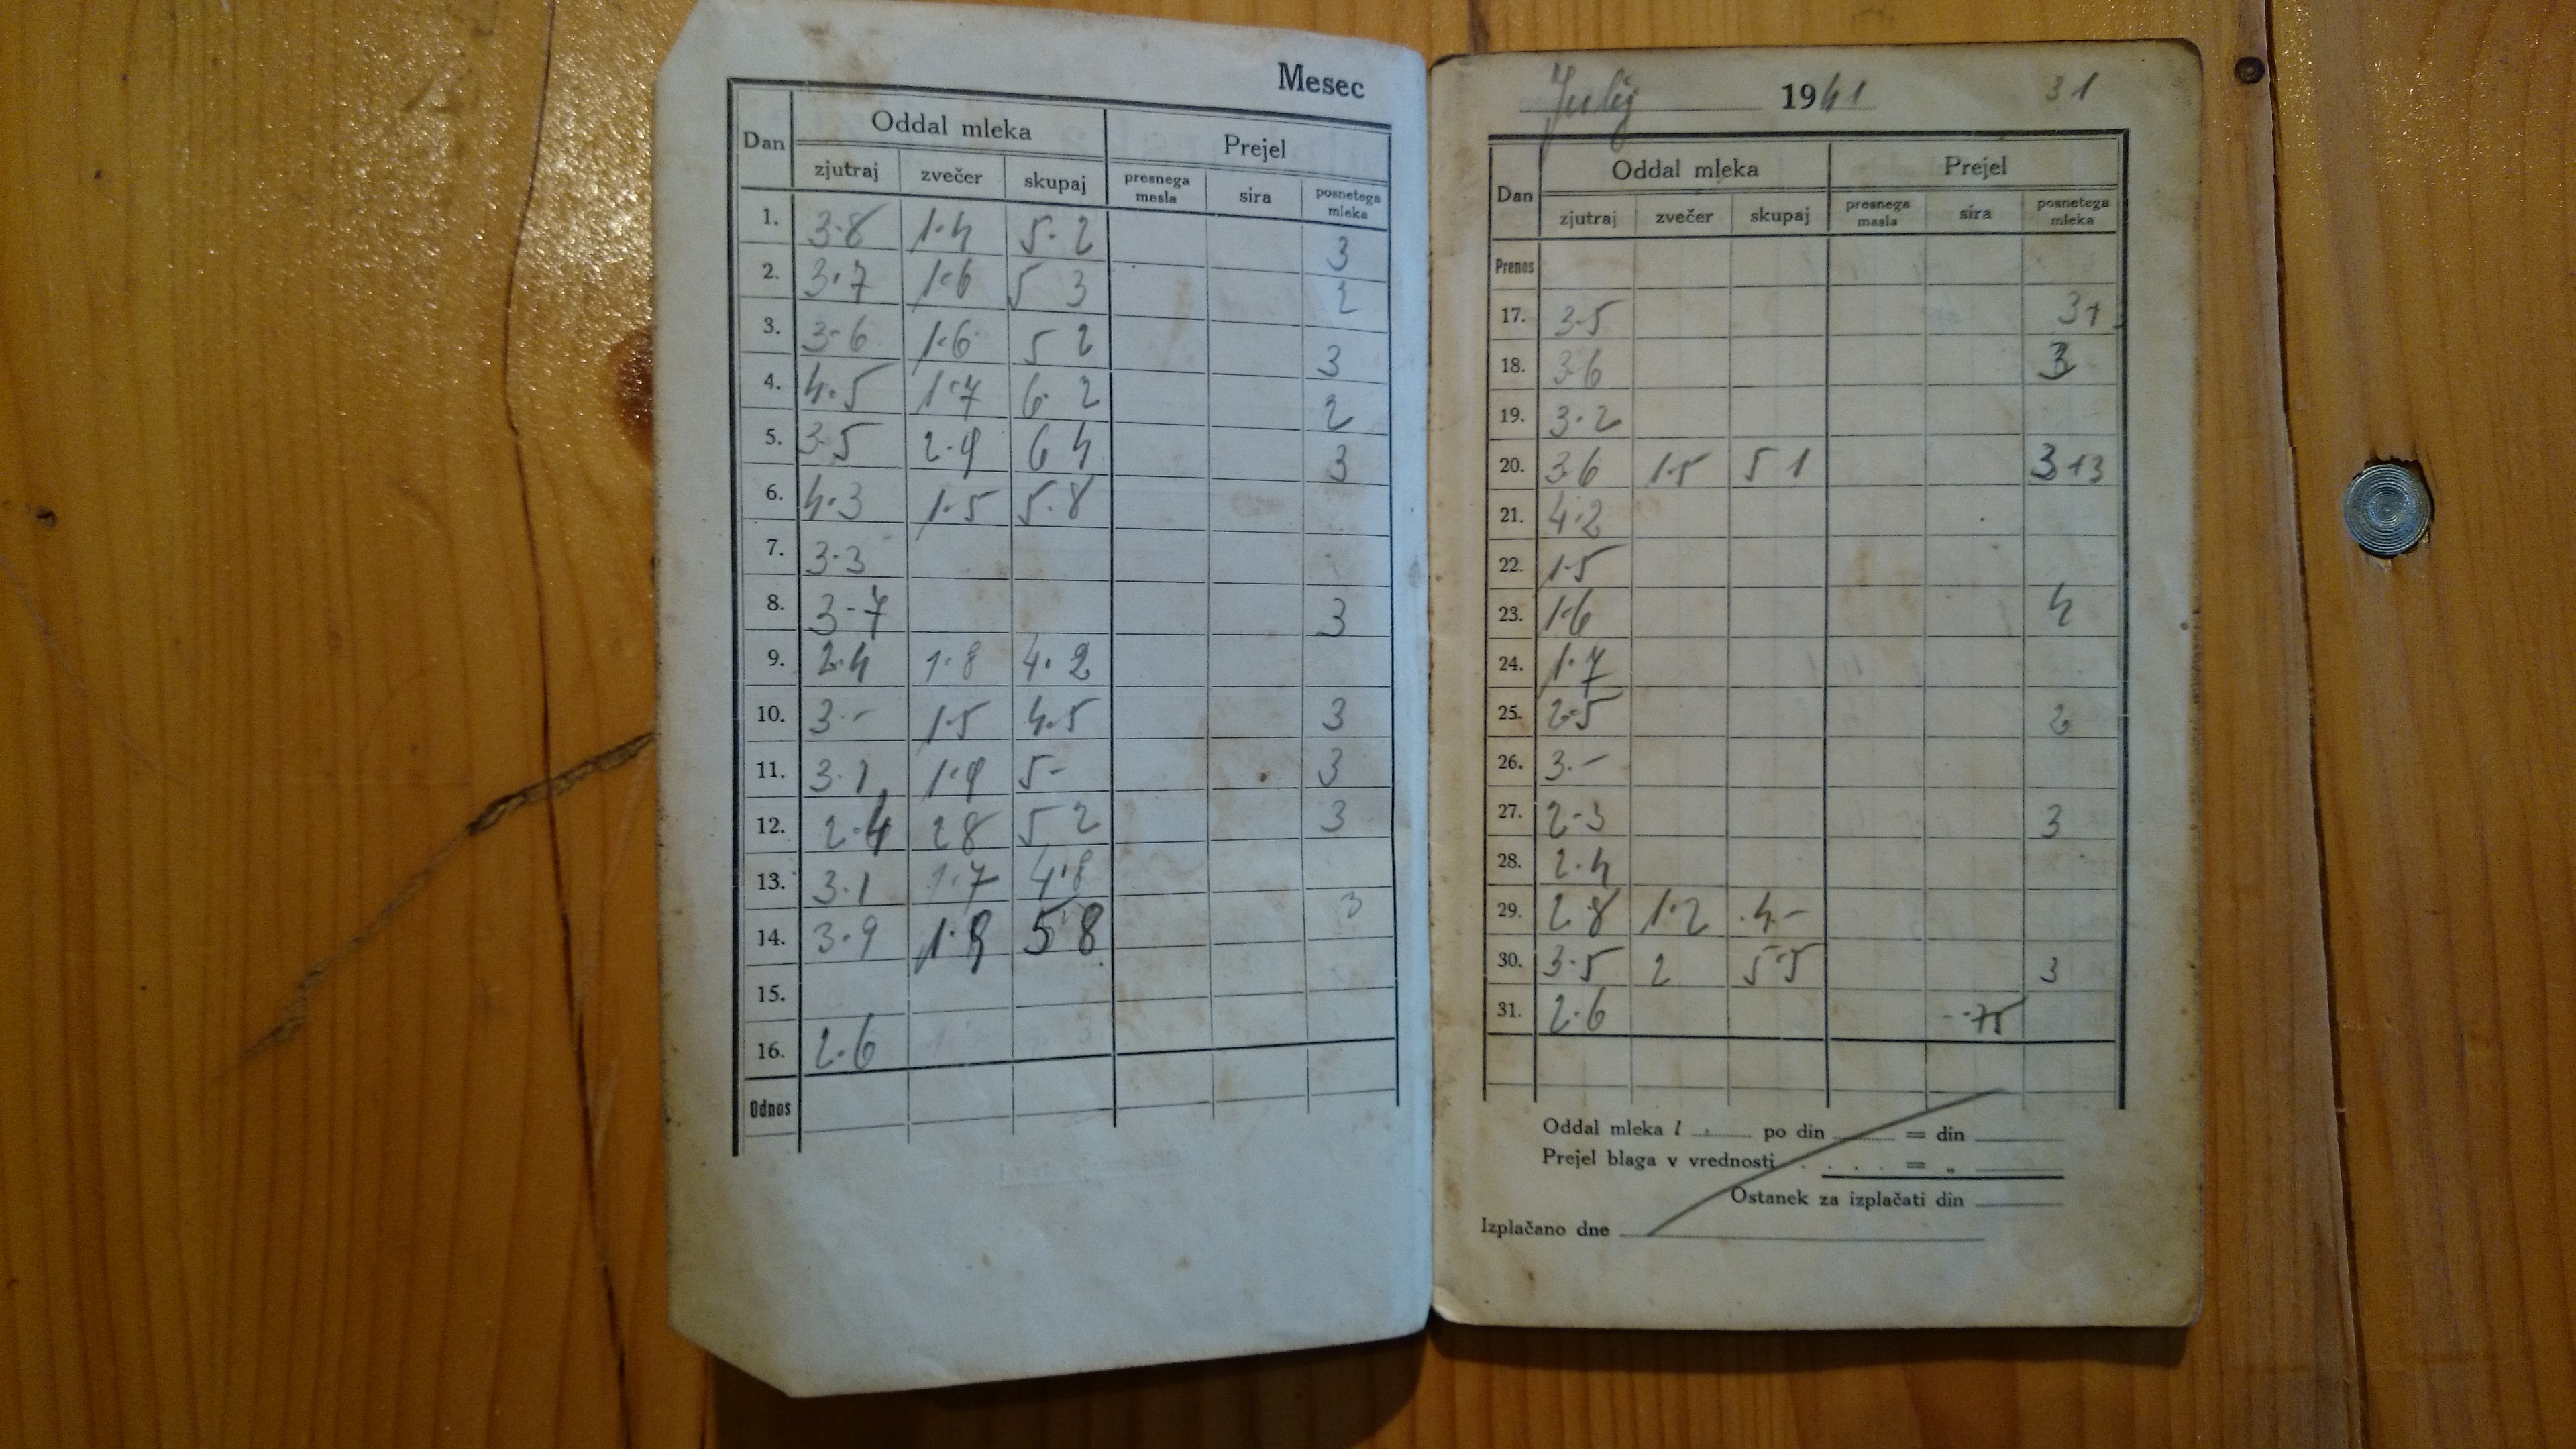 Mesec
Dan Oddal mleka Prejel
zjutraj zvečer skupaj presnega masla sira posnetega mleka
1. 3·8 1·4 5·2 3
2. 3·7 1·6 5 3 2
3. 3·6 1·6 5 2 3
4. 4·5 1·7 6·2 2
5. 3·5 2·9 6 4 3
6. 4·3 1·5 5·8
7. 3·3
8. 3-7 3
9. 2·4 1·8 4·2
10. 3·- 1·5 4·5 3
11. 3·1 1·9 5- 3
12. 2·4 2 8 5 2 3
13. 3·1 1·7 4·8
14. 3·9 1·9 5 8 3
15.
16. 2·6
Odnos
Julij 1941 31
Dan Oddal mleka Prejel
zjutraj zvečer skupaj presnega masla sira posnetega mleka
Prenos
17. 3·5 3+
18. 3·6 3
19. 3·2
20. 3·6 1·5 5 1 3+3
21. 4·2
22. 1·5
23. 1·6 4
24. 1·7
25. 2·5 2
26. 3·-
27. 2-3 3
28. 2·4
29. 2·8 1·2 ·4·-
30. 3·5 2 5·5 3
31. 2·6 -·75
Oddal mleka l po din = din
Prejel blaga v vrednosti . . . . = „
Ostanek za izplačati din
Izplačano dne